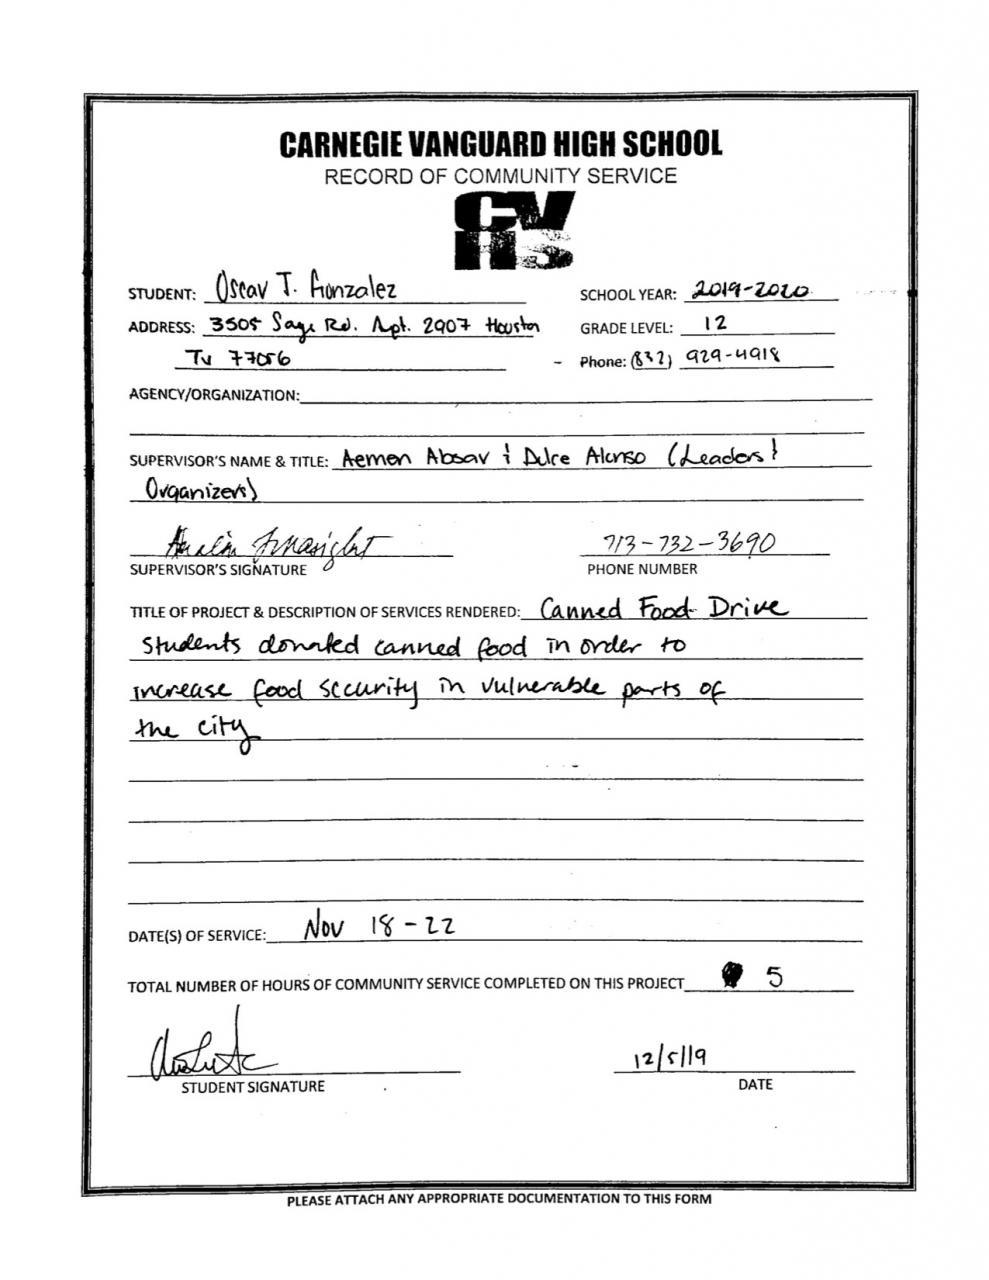 CARNEGIE VANGUARD HIGH SCHOOL
RECORD OF COMMUNITY SERVICE
CV
HS
STUDENT: Oscar T. Gonzalez SCHOOL YEAR: 2019-2020
ADDRESS: 3505 Sage Rd. Apt. 2907 Houston GRADE LEVEL: 12
Tx 77056 Phone: (832) 929-4918
AGENCY/ORGANIZATION:
SUPERVISOR'S NAME & TITLE: Aemen Absar & Dulce Alonso (Leaders &
Organizers)
713-732-3690
SUPERVISOR'S SIGNATURE PHONE NUMBER
TITLE OF PROJECT & DESCRIPTION OF SERVICES RENDERED: Canned Food Drive
Students donated canned food in order to
increase food security in vulnerable parts of
the city
DATE(S) OF SERVICE: Nov 18-22
TOTAL NUMBER OF HOURS OF COMMUNITY SERVICE COMPLETED ON THIS PROJECT 5
12/5/19
STUDENT SIGNATURE DATE
PLEASE ATTACH ANY APPROPRIATE DOCUMENTATION TO THIS FORM